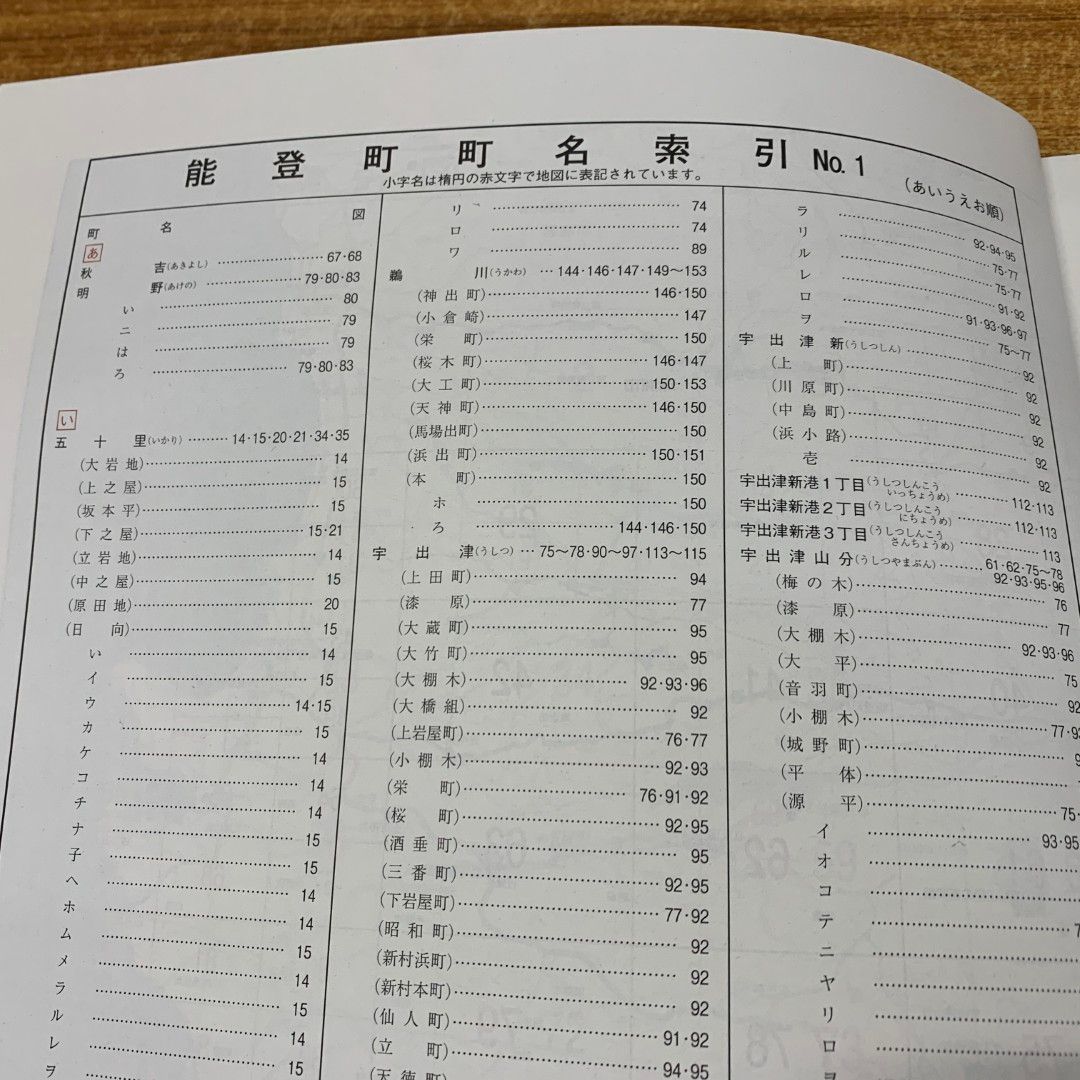 能登町町名索引 No.1
小字名は楕円の赤文字で地図に表記されています。
(あいうえお順)
町名 図
あ
秋吉(あきよし)……67・68
明野(あけの)……79・80・83
い……80
ニ……79
は……79
ろ……79・80・83
い
五十里(いかり)……14・15・20・21・34・35
(大岩地)……14
(上之屋)……15
(坂本平)……15
(下之屋)……15・21
(立岩地)……14
(中之屋)……15
(原田地)……20
(日向)……15
い……14
イ……15
ウ……14・15
カ……15
ケ……14
コ……14
チ……14
ナ……15
子……15
ヘ……14
ホ……14
ム……15
メ……14
ラ……15
ル……14
レ……15
ヲ
リ……74
ロ……74
ワ……89
鵜川(うかわ)…144・146・147・149〜153
(神出町)……146・150
(小倉崎)……147
(栄町)……150
(桜木町)……146・147
(大工町)……150・153
(天神町)……146・150
(馬場出町)……150
(浜出町)……150・151
(本町)……150
ホ……150
ろ……144・146・150
宇出津(うしつ)…75〜78・90〜97・113〜115
(上田町)……94
(漆原)……77
(大蔵町)……95
(大竹町)……95
(大棚木)……92・93・96
(大橋組)……92
(上岩屋町)……76・77
(小棚木)……92・93
(栄町)……76・91・92
(桜町)……92・95
(酒垂町)……95
(三番町)……92・95
(下岩屋町)……77・92
(昭和町)……92
(新村浜町)……92
(新村本町)……92
(仙人町)……91・92
(立町)……94・95
(天徳町)
ラ……92・94・95
リ……75・77
ル……75・77
レ……91・92
ロ……91・93・96・97
ヲ……75〜77
宇出津新(うしつしん)……92
(上町)……92
(川原町)……92
(中島町)……92
(浜小路)……92
壱……92
宇出津新港1丁目(うしつしんこういっちょうめ)……112・113
宇出津新港2丁目(うしつしんこうにちょうめ)……112・113
宇出津新港3丁目(うしつしんこうさんちょうめ)……113
宇出津山分(うしつやまぶん)……61・62・75〜78
92・93・95・96
(梅の木)……76
(漆原)……77
(大棚木)……92・93・96
(大平)……75
(音羽町)……92
(小棚木)……77・93
(城野町)……
(平体)……
(源平)……75・
イ……93・95
オ……
コ……
テ……
ニ……
ヤ……
リ……
ロ……